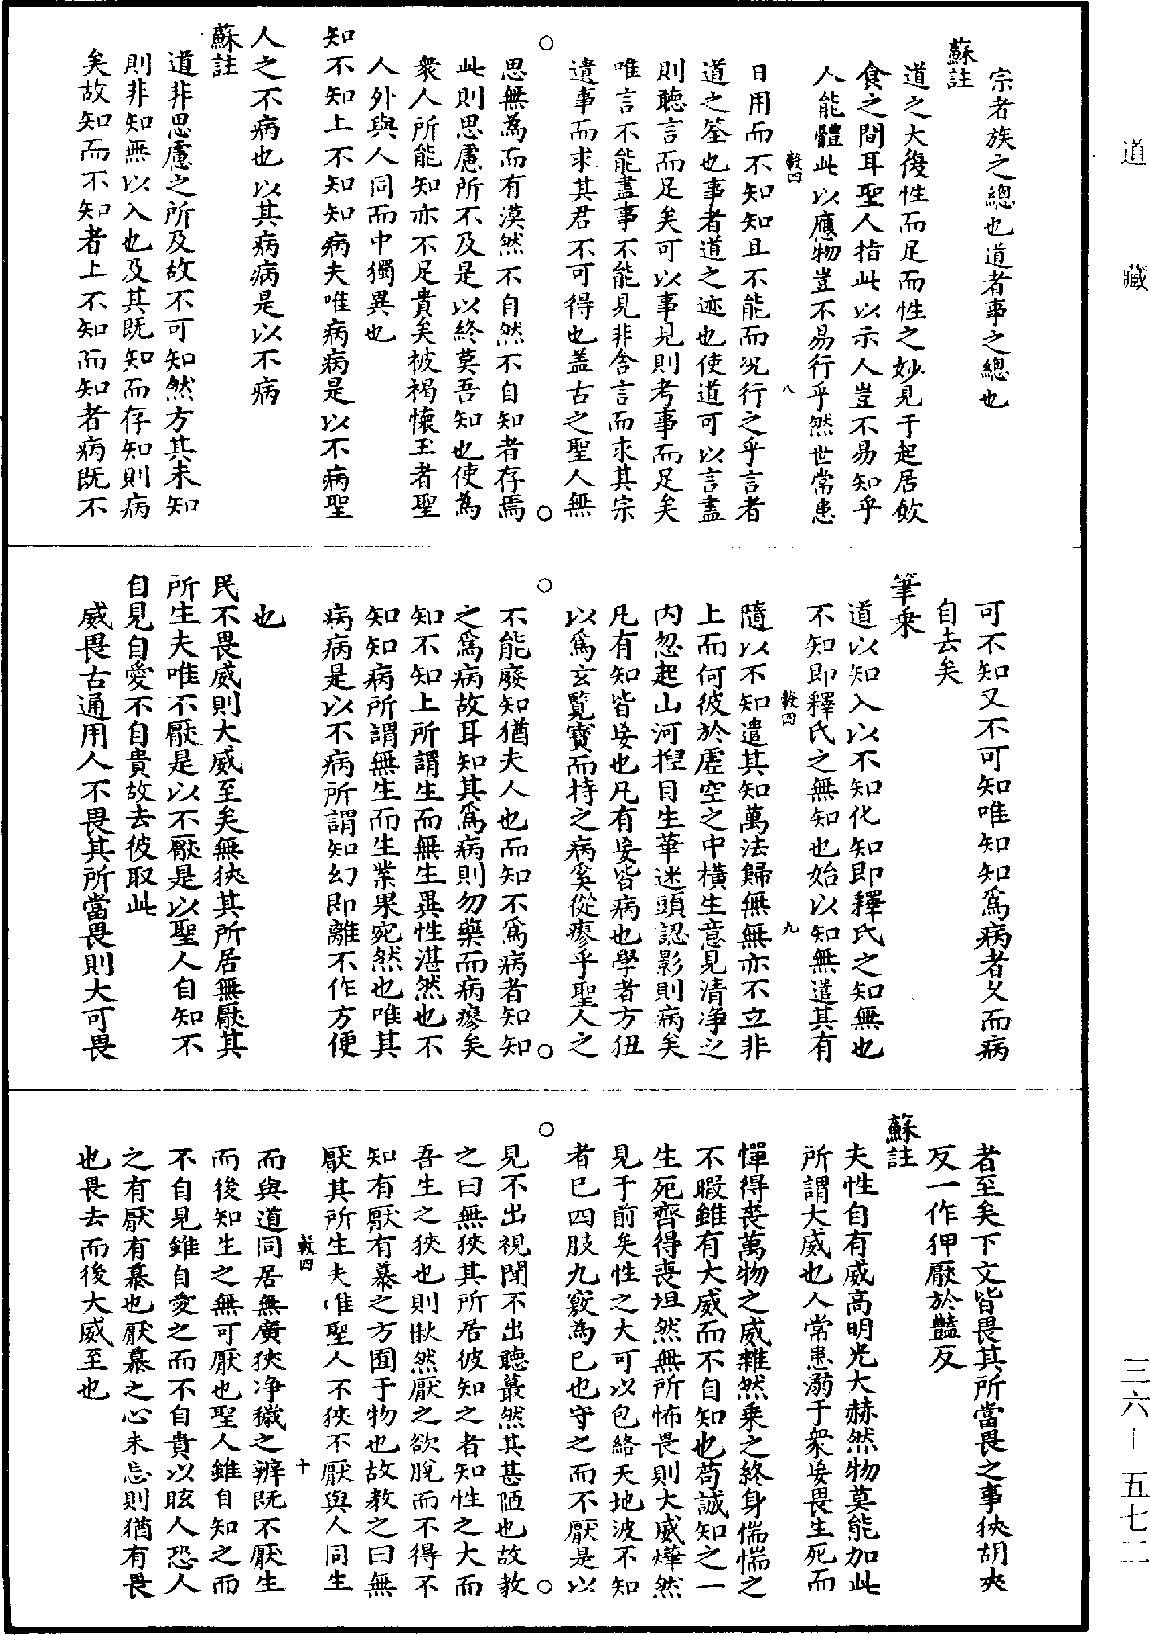 道藏
三六—五七二
宗者族之總也道者事之總也
蘇註
道之大復性而足而性之妙見于起居飲
食之間耳聖人指此以示人豈不易知乎
人能體此以應物豈不易行乎然世常患
穀四
八
日用而不知知且不能而況行之乎言者
道之筌也事者道之迹也使道可以言盡
則聽言而足矣可以事見則考事而足矣
唯言不能盡事不能見非舍言而求其宗
遺事而求其君不可得也盖古之聖人無
思無為而有漠然不自然不自知者存焉
此則思慮所不及是以終莫吾知也使為
衆人所能知亦不足貴矣被褐懷玉者聖
人外與人同而中獨異也
知不知上不知知病夫唯病病是以不病聖
人之不病也以其病病是以不病
蘇註
道非思慮之所及故不可知然方其未知
則非知無以入也及其既知而存知則病
矣故知而不知者上不知而知者病既不
可不知又不可知唯知知爲病者久而病
自去矣
筆乘
道以知入以不知化知即釋氏之知無也
不知即釋氏之無知也始以知無遣其有
穀四
九
隨以不知遣其知萬法歸無無亦不立非
上而何彼於虛空之中橫生意見清净之
内忽起山河揑目生華迷頭認影則病矣
凡有知皆妄也凡有妄皆病也學者方狃
以爲玄覽寶而持之病奚從瘳乎聖人之
不能廢知猶夫人也而知不爲病者知知
之爲病故耳知其爲病則勿藥而病瘳矣
知不知上所謂生而無生異性湛然也不
知知病所謂無生而生業果宛然也唯其
病病是以不病所謂知幻即離不作方便
也
民不畏威則大威至矣無狹其所居無厭其
所生夫唯不厭是以不厭是以聖人自知不
自見自愛不自貴故去彼取此
威畏古通用人不畏其所當畏則大可畏
者至矣下文皆畏其所當畏之事狹胡夾
反一作狎厭於豔反
蘇註
夫性自有威高明光大赫然物莫能加此
所謂大威也人常患溺于衆妄畏生死而
憚得喪萬物之威雜然乘之終身惴惴之
不暇雖有大威而不自知也苟誠知之一
生死齊得喪坦然無所怖畏則大威燁然
見于前矣性之大可以包絡天地波不知
者已四肢九竅為已也守之而不厭是以
見不出視聞不出聽蕞然其甚陋也故教
之曰無狹其所居彼知之者知性之大而
吾生之狹也則猒然厭之欲脫而不得不
知有厭有慕之方囿于物也故教之曰無
厭其所生夫唯聖人不狹不厭與人同生
穀四
十
而與道同居無廣狹净穢之辨既不厭生
而後知生之無可厭也聖人雖自知之而
不自見雖自愛之而不自貴以眩人恐人
之有厭有慕也厭慕之心未忘則猶有畏
也畏去而後大威至也